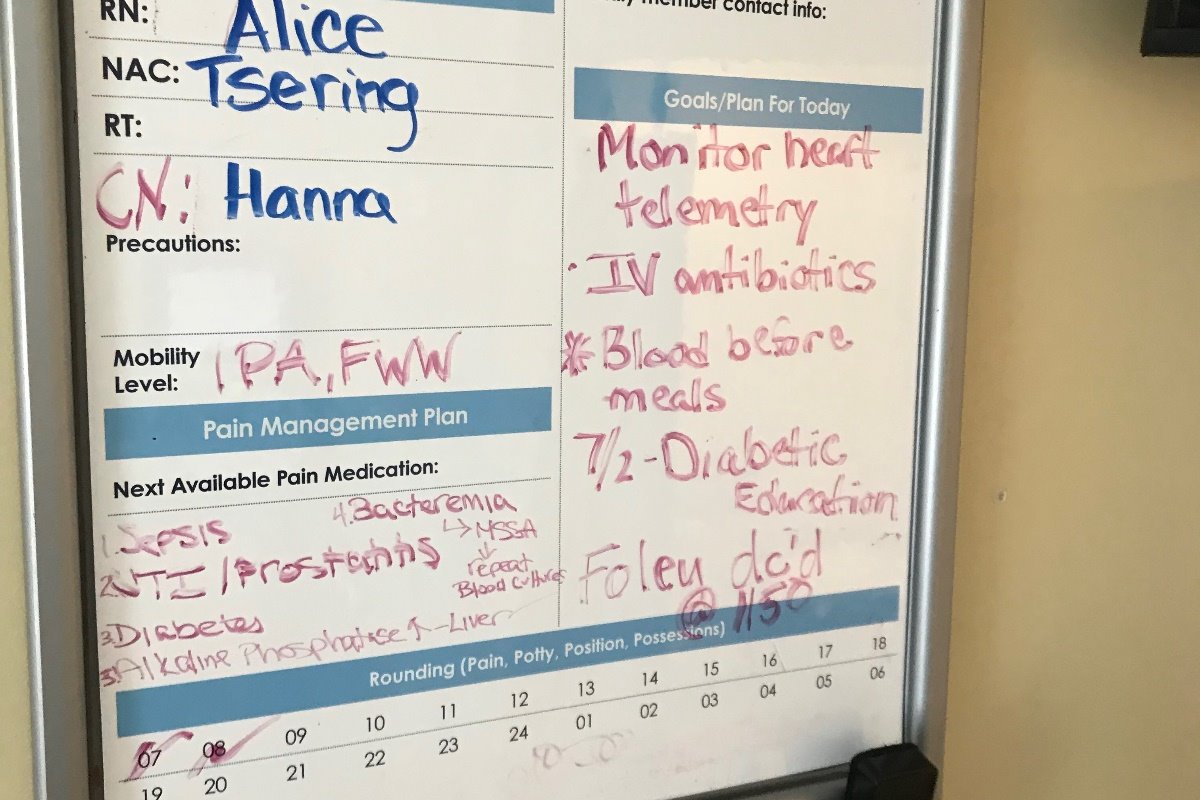 RN: Alice
NAC: Tsering
RT:
CN: Hanna
Precautions:
Mobility
Level: 1PA, FWW
Pain Management Plan
Next Available Pain Medication:
1. Sepsis
2. UTI / Prostatitis
3. Diabetes
3. Alkaline Phosphatase ↑ - Liver
4. Bacteremia
↳ MSSA
↓
repeat
Blood Cultures
member contact info:
Goals/Plan For Today
· Monitor heart
telemetry
· IV antibiotics
* Blood before
meals
7/2 - Diabetic
Education
Foley dc'd
@ 1150
Rounding (Pain, Potty, Position, Possessions)
07 08 09 10 11 12 13 14 15 16 17 18
19 20 21 22 23 24 01 02 03 04 05 06